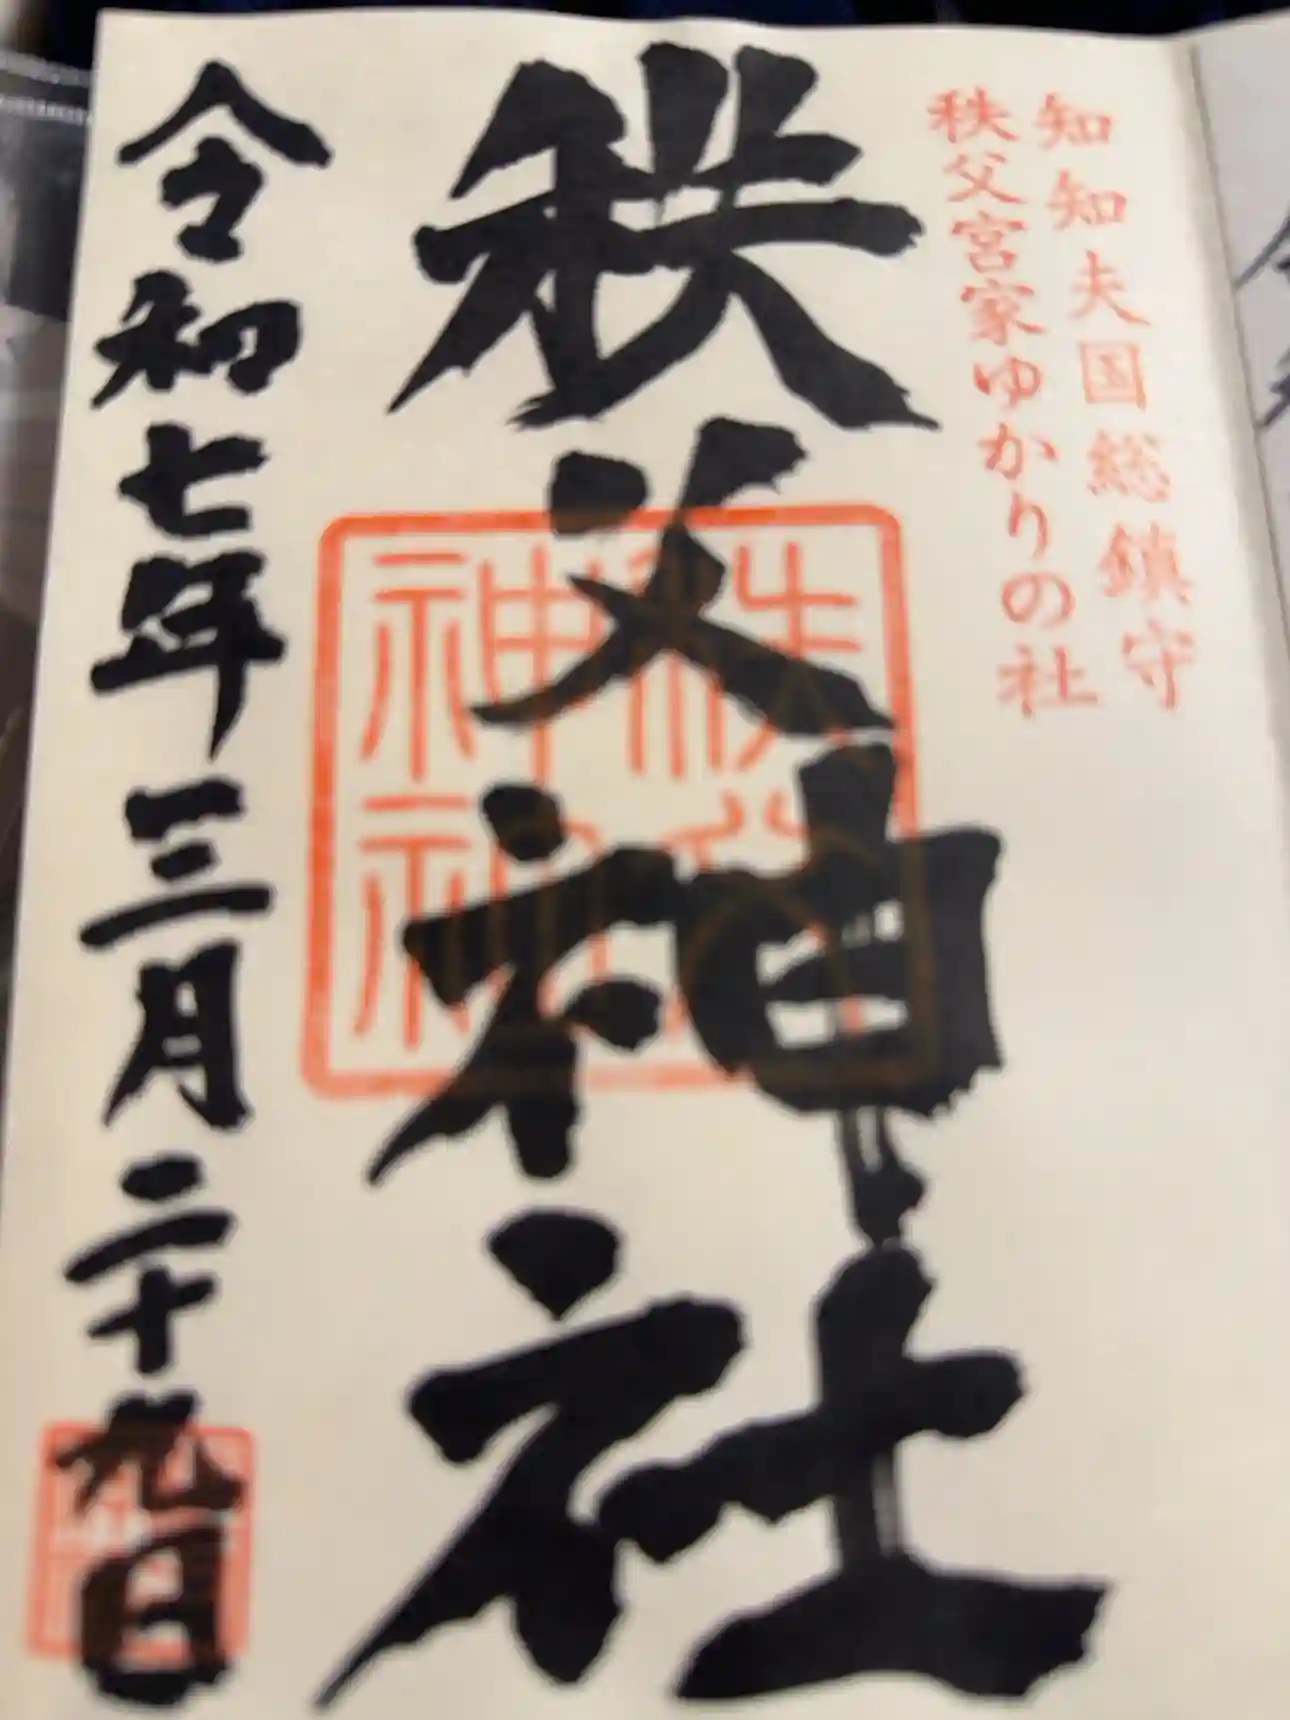 知知夫国総鎮守
秩父宮家ゆかりの社
秩父神社
秩父
神社
令和七年三月二十九日